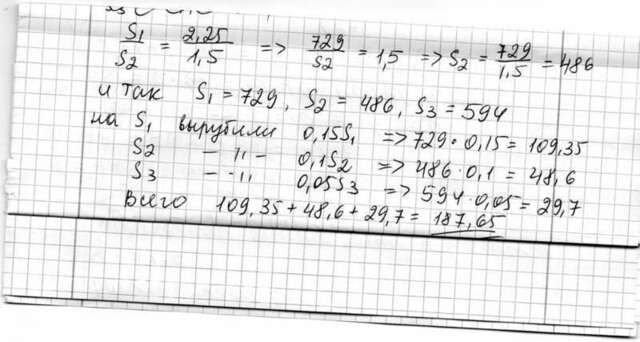 S1/S2 = 2,25/1,5 => 729/S2 = 1,5 => S2 = 729/1,5 = 486
и так S1 = 729, S2 = 486, S3 = 594
на S1 вырубили 0,15S1 => 729·0,15 = 109,35
S2 – " – 0,1S2 => 486·0,1 = 48,6
S3 – " 0,05S3 => 594·0,05 = 29,7
Всего 109,35 + 48,6 + 29,7 = 187,65